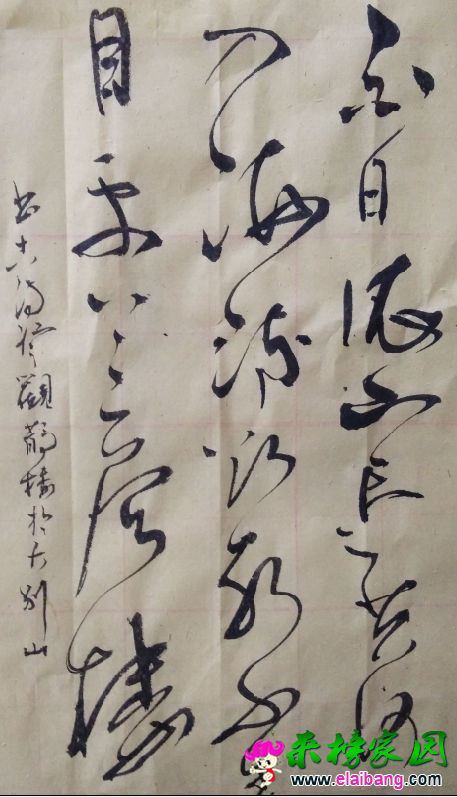 白日依山尽黄河
入海流欲穷千里
目更上一层楼
登鹳鹊楼於大别山
来榜家园
www.elaibang.com